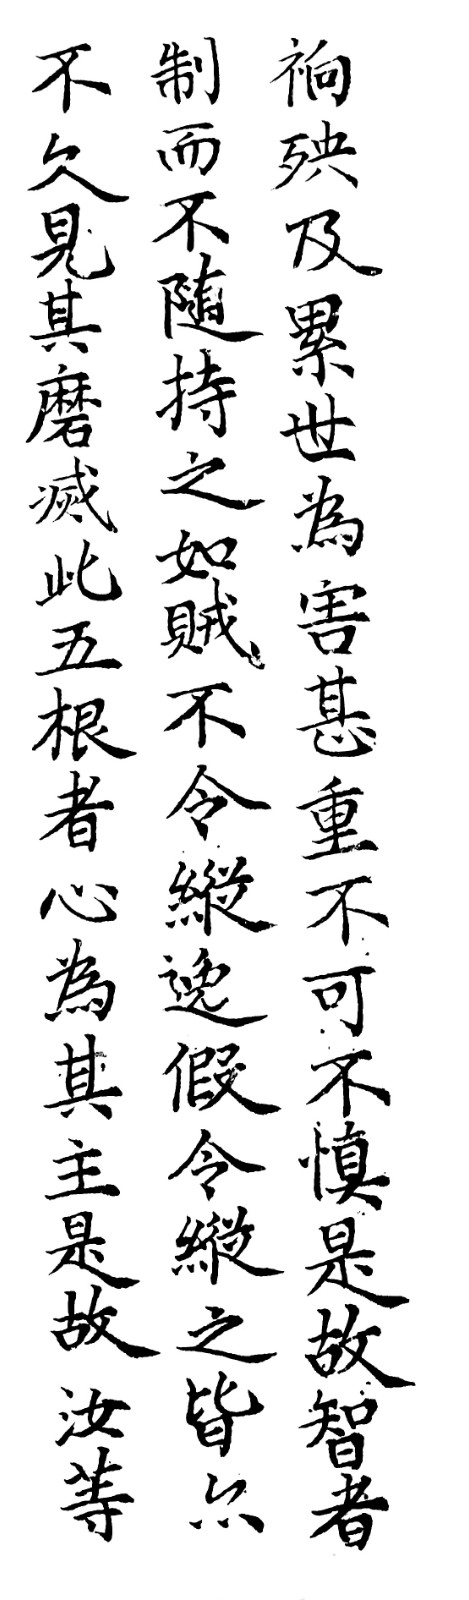 禍殃及累世為害甚重不可不慎是故智者
制而不随持之如賊不令縱逸假令縱之皆尒
不久見其磨滅此五根者心為其主是故汝等